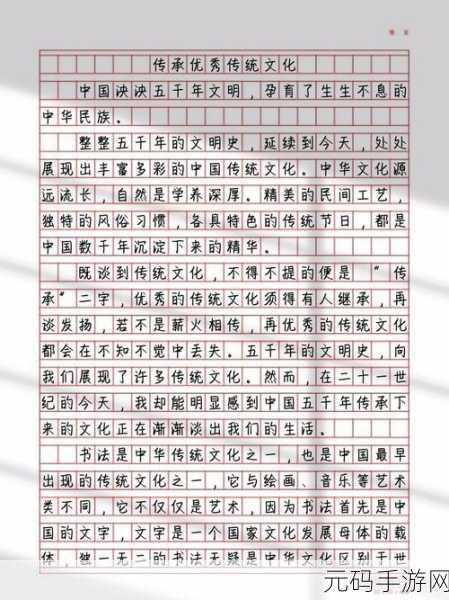 传承优秀传统文化
中国泱泱五千年文明，孕育了生生不息的
中华民族。
整整五千年的文明史，延续到今天，处处
展现出丰富多彩的中国传统文化。中华文化源
远流长，自然是学养深厚。精美的民间工艺，
独特的风俗习惯，各具特色的传统节日，都是
中国数千年沉淀下来的精华。
既谈到传统文化，不得不提的便是“传
承”二字，优秀的传统文化须得有人继承，再
谈发扬，若不是薪火相传，再优秀的传统文化
都会在不知不觉中丢失。五千年的文明史，向
我们展现了许多传统文化。然而，在二十一世
纪的今天，我却能明显感到中国五千年传承下
来的文化正在渐渐淡出我们的生活。
书法是中华传统文化之一，也是中国最早
出现的传统文化之一，它与绘画、音乐等艺术
类不同，它不仅仅是艺术，因为书法首先是中
国的文字，文字是一个国家文化发展母体的载
体，独一无二的书法无疑是中华文化区别于世
元码手游网